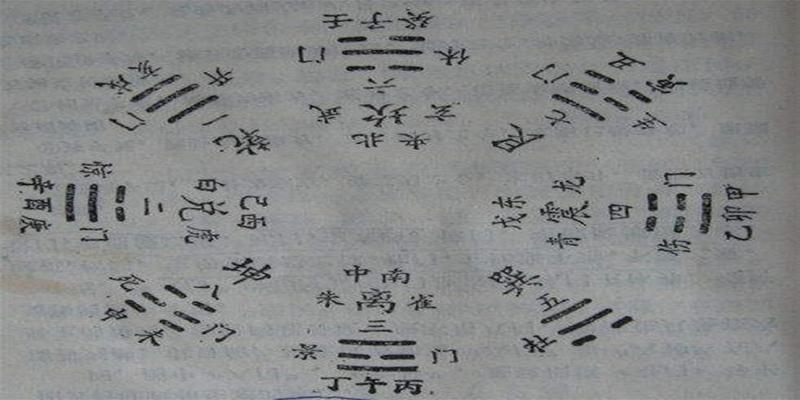 壬子癸
门 休
六
武坎玄
北
亥戌
开门
一
乾
丑寅
生门
七
艮
辛酉庚
惊门
二
白兑虎
己西
戊东
青震龙
四
伤门
甲卯乙
坤
八
死门
未
中南
朱离雀
三
景门
丁午丙
五